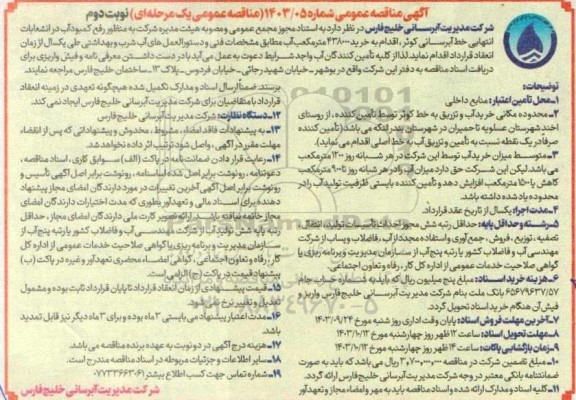 آگهی مناقصه عمومی شماره ۱۴۰۳/۰۵ (مناقصه عمومی یک مرحله‌ای) نوبت دوم
شرکت مدیریت آبرسانی خلیج فارس در نظر دارد به استناد مجوز مجمع عمومی و مصوبه هیئت مدیره شرکت به منظور رفع کمبود آب در انشعابات
انتهایی خط آبرسانی کوثر، اقدام به خرید ۴۳۸/۰۰۰ مترمکعب آب مطابق مشخصات فنی و دستورالعمل های آب شرب و بهداشتی طی یکسال از زمان
انعقاد قرارداد اقدام نماید. لذا از کلیه تأمین کنندگان آب واجد شرایط دعوت به عمل می آید با در دست داشتن معرفی نامه و فیش واریزی برای
دریافت اسناد مناقصه به دفتر این شرکت واقع در بوشهر - خیابان شهید رجائی - خیابان فردوس - پلاک ۱۳ - ساختمان خلیج فارس مراجعه نمایند.
توضیحات:
۱- محل تأمین اعتبار: منابع داخلی
۲- محدوده مکانی خرید آب و تزریق به خط کوثر توسط تأمین کننده، از روستای
اخند شهرستان عسلویه تا حمیران در شهرستان بندر لنگه می باشد (تأمین کننده
صرفاً در یک نقطه نسبت به تأمین و تزریق آب به خط اصلی اقدام می نماید).
۳- متوسط میزان خرید آب توسط این شرکت در هر شبانه روز ۱۲۰۰ مترمکعب
می باشد. لیکن این شرکت حق دارد میزان آب را در هر شبانه روز تا ۹۰۰ مترمکعب
کاهش یا ۱۵۰۰ مترمکعب افزایش دهد و تأمین کننده بایستی ظرفیت تولید آب را در
محدوده یاد شده داشته باشد.
۴- مدت اجرا: یکسال از تاریخ عقد قرارداد.
۵- رشته و حداقل پایه: حداقل رتبه شش مجوز احداث تأسیسات تولید، انتقال،
تصفیه، توزیع، فروش، جمع آوری و استفاده مجدد از آب، فاضلاب و پساب از شرکت
مهندسی آب و فاضلاب کشور یا رتبه پنج آب از سازمان مدیریت و برنامه ریزی یا
گواهی صلاحیت خدمات عمومی از اداره کل کار، رفاه و تعاون اجتماعی.
۶- هزینه خرید اسناد: مبلغ پنج میلیون ریال که باید به شماره حساب جام
۶۵۶۷۹۶۳۷/۵۷ بانک ملت بنام شرکت مدیریت آبرسانی خلیج فارس واریز و
فیش آن هنگام خرید اسناد تحویل گردد.
۷- آخرین مهلت فروش اسناد: پایان وقت اداری روز شنبه مورخ ۱۴۰۳/۹/۲۴
۸- مهلت تحویل اسناد: ساعت ۱۲ ظهر روز چهارشنبه مورخ ۱۴۰۳/۱۰/۱۲
۹- زمان بازگشایی پاکات: ساعت ۱۴ ظهر روز چهارشنبه مورخ ۱۴۰۳/۱۰/۱۲
۱۰- مبلغ تضمین شرکت در مناقصه ۳/۷۰۰/۰۰۰/۰۰۰ ریال می باشد که باید به صورت
ضمانتنامه بانکی معتبر در وجه شرکت مدیریت آبرسانی خلیج فارس ارائه گردد.
۱۱- کلیه اسناد و مدارک ارائه شده و اسناد مناقصه باید به مهر و امضاء مجاز و تعهدآور
برسند. ضمناً ارسال اسناد و مدارک تکمیل شده هیچگونه تعهدی در زمینه انعقاد
قرارداد با متقاضیان برای شرکت مدیریت آبرسانی خلیج فارس ایجاد نمی کند.
۱۲- دستگاه نظارت: شرکت مدیریت آبرسانی خلیج فارس
۱۳- به پیشنهادات فاقد امضاء، مشروط، مخدوش و پیشنهاداتی که پس از انقضاء
مهلت مقرر در آگهی، واصل شود ترتیب اثر داده نخواهد شد.
۱۴- رعایت قرار دادن ضمانت نامه در پاکت (الف) سوابق کاری، اسناد مناقصه،
دعوتنامه، رونوشت برابر اصل شده اساسنامه، رونوشت برابر اصل آگهی تأسیس و
رونوشت برابر اصل آگهی آخرین تغییرات در مورد دارندگان امضای مجاز پیشنهاد
دهنده برای اسناد مالی و تعهدآور بطوری که مدت اختیارات دارندگان امضای
مجاز خاتمه نیافته باشد، ارائه تصویر کارت ملی دارندگان امضای مجاز، حداقل
رتبه پایه شش از شرکت مهندسی آب و فاضلاب کشور یا رتبه پنج آب از
سازمان مدیریت و برنامه ریزی یا گواهی صلاحیت خدمات عمومی از اداره کل
کار، رفاه و تعاون اجتماعی، گواهی امضاء محضری تعهدآور و غیره در پاکت (ب)
پیشنهاد قیمت در پاکت (ج) الزامی است.
۱۵- قیمت پیشنهادی از زمان انعقاد قرارداد تا پایان قرارداد ثابت بوده و مشمول
تعدیل و تغییر نرخ نمی شود.
۱۶- مدت اعتبار پیشنهاد می بایستی ۳ ماه بوده و برای ۳ ماه دیگر نیز قابل تمدید
باشد.
۱۷- هزینه درج آگهی در دو نوبت به عهده برنده مناقصه می باشد.
۱۸- سایر اطلاعات و جزئیات مربوطه در اسناد مناقصه مندرج است.
۱۹- شماره تماس جهت کسب اطلاع بیشتر ۰۷۷۳۳۶۶۳۰۶۱
شرکت مدیریت آبرسانی خلیج فارس